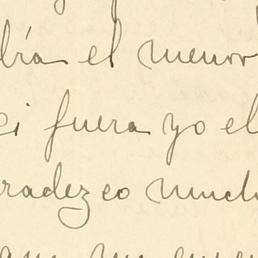 bría el menor
si fuera yo el
radezco mucho